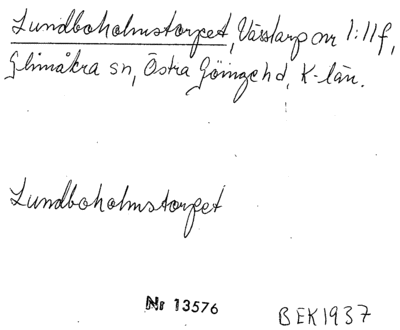 Lundboholmstorpet, Värstarp nr 1:11 f,
Glimåkra sn, Östra Göinge hd, K-län.
Lundboholmstorpet
Nr 13576
BEK1937